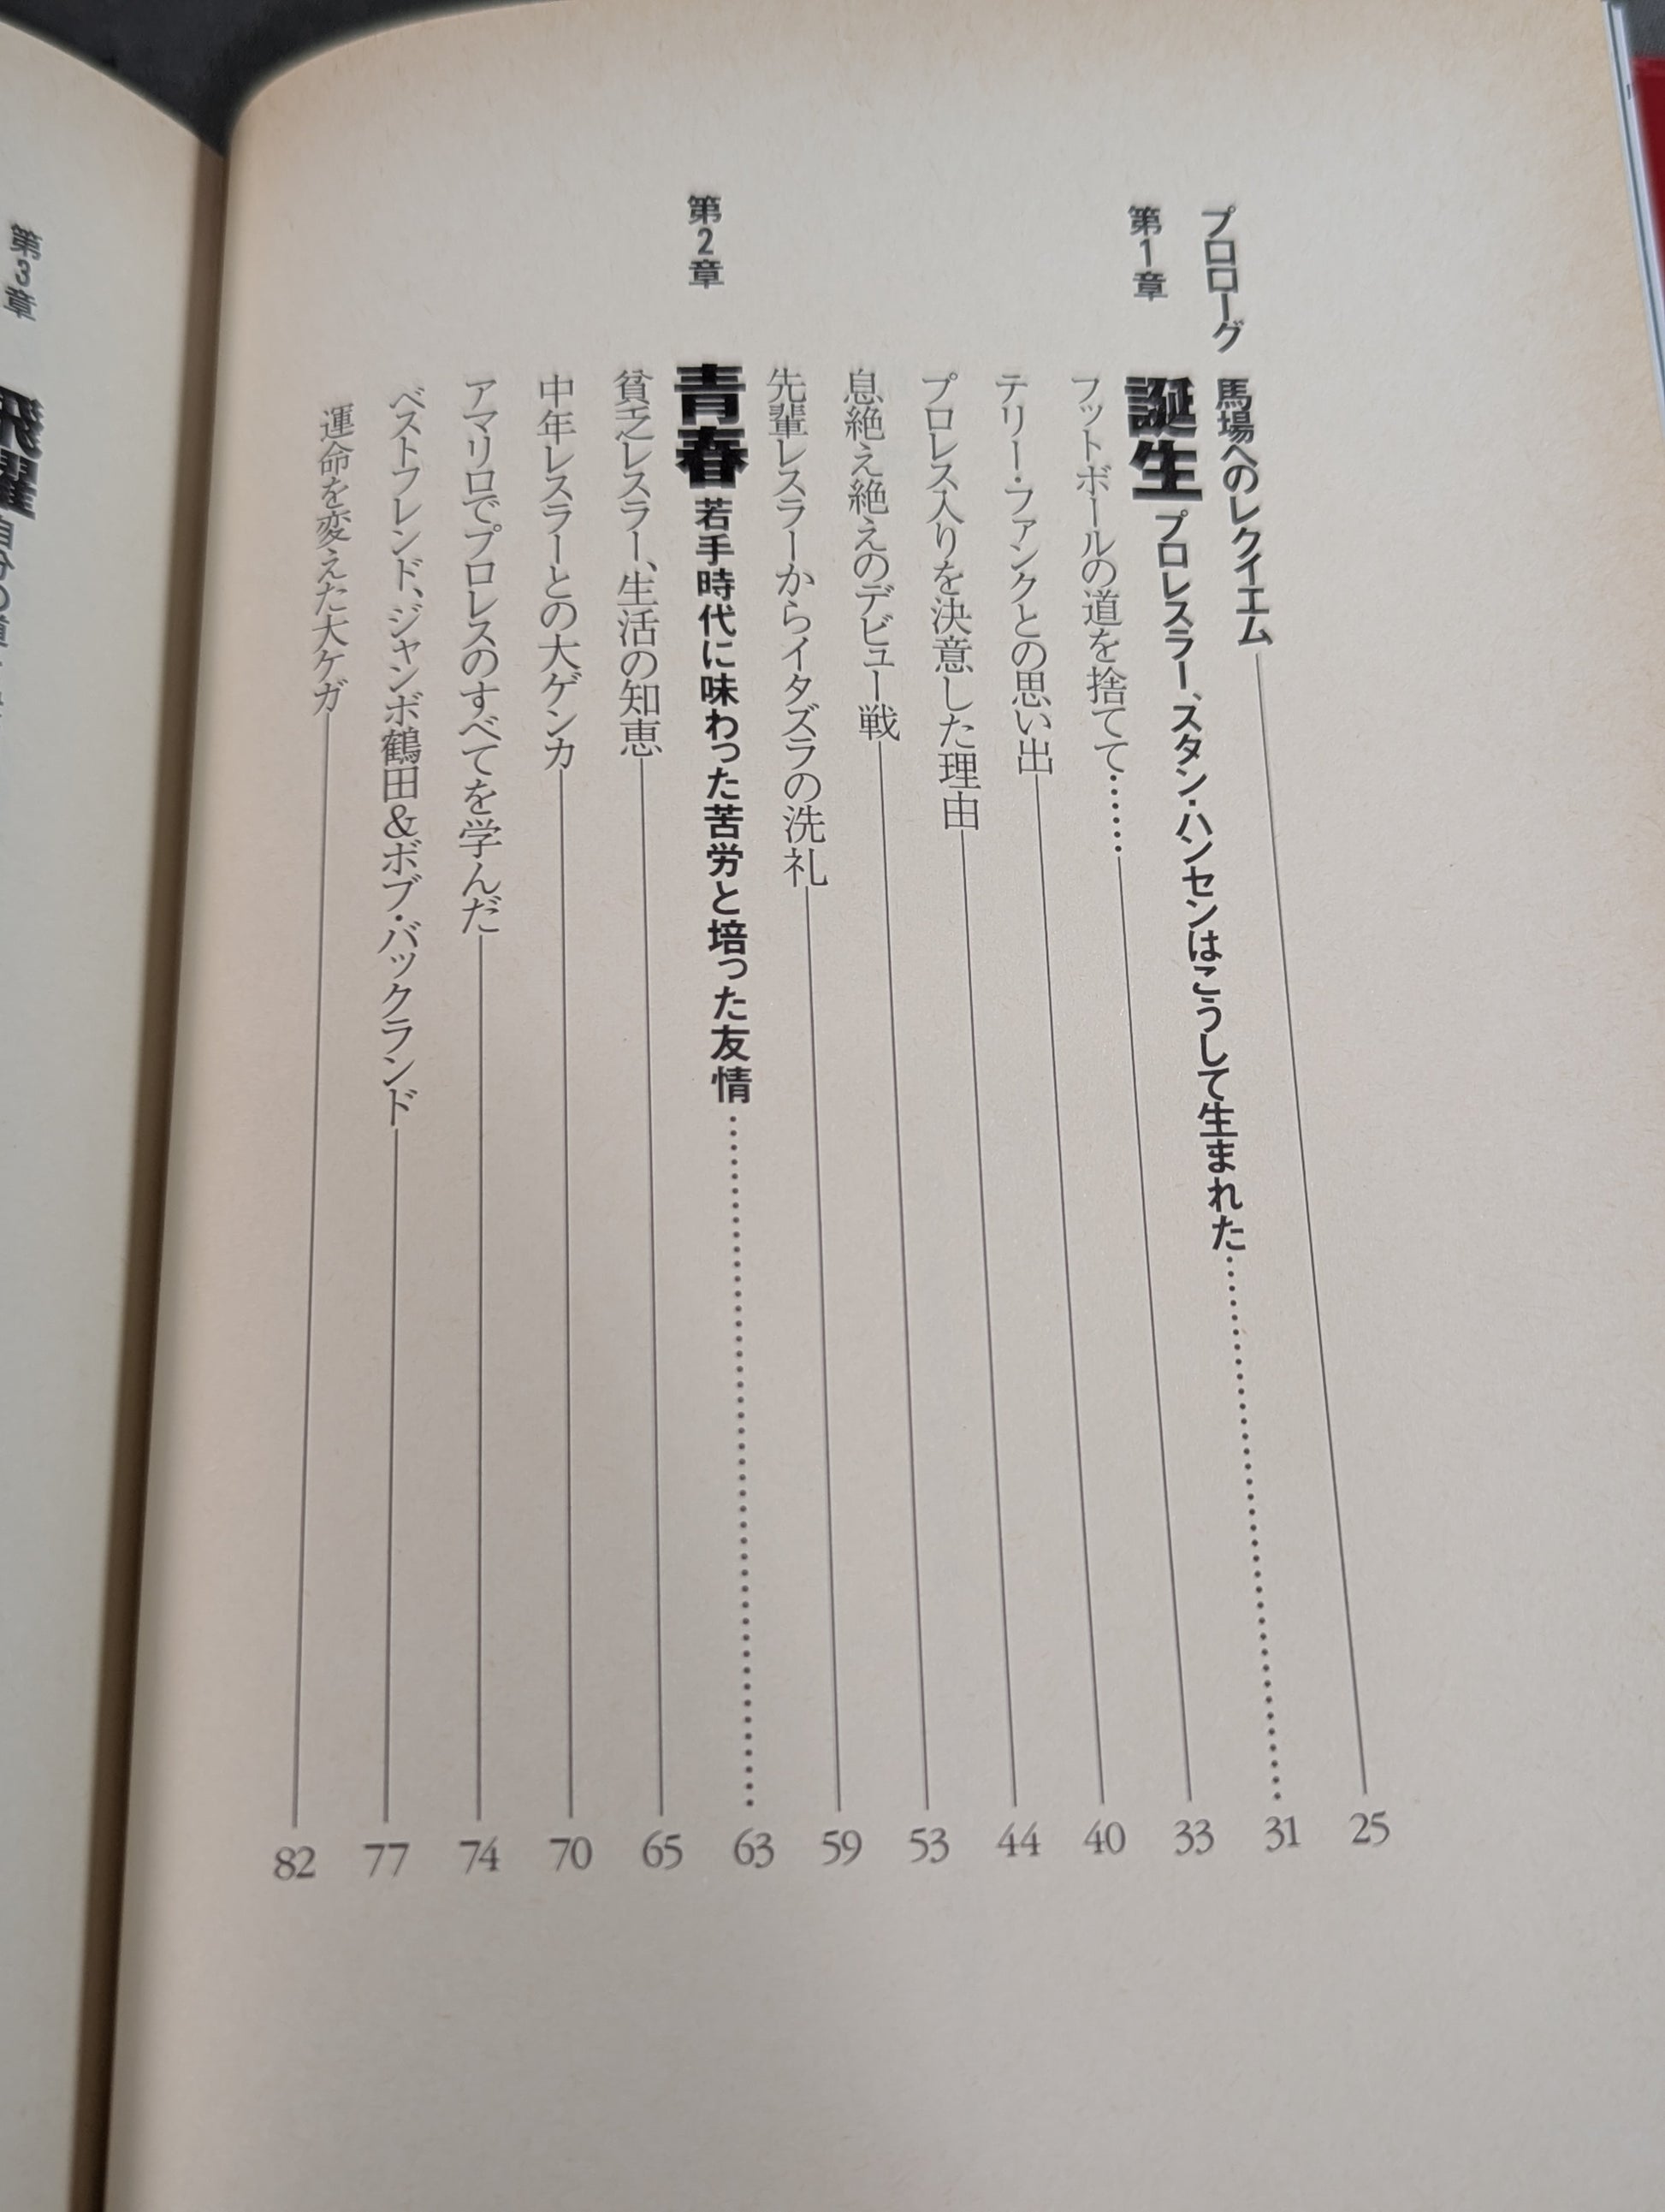 プロローグ 馬場へのレクイエム 25
第1章 誕生 プロレスラー、スタン・ハンセンはこうして生まれた…… 31
フットボールの道を捨てて…… 33
テリー・ファンクとの思い出 40
プロレス入りを決意した理由 44
息絶え絶えのデビュー戦 53
先輩レスラーからイタズラの洗礼 59
第2章 青春 若手時代に味わった苦労と培った友情…… 63
貧乏レスラー、生活の知恵 65
中年レスラーとの大ゲンカ 70
アマリロでプロレスのすべてを学んだ 74
ベストフレンド、ジャンボ鶴田&ボブ・バックランド 77
運命を変えた大ケガ 82
第3章 飛躍 自分の道